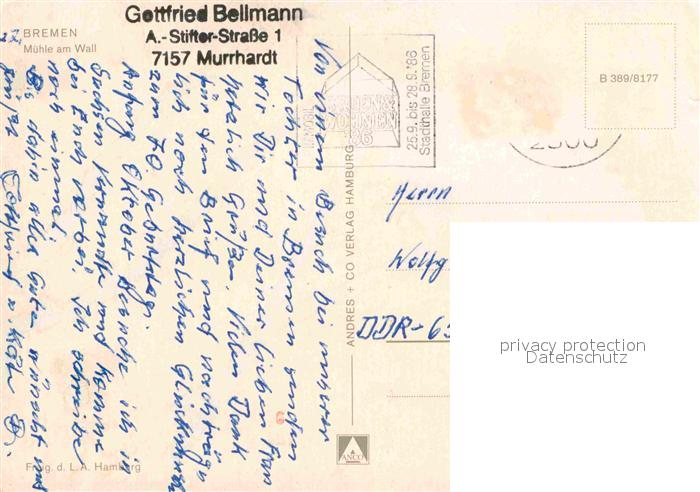 BREMEN
Mühle am Wall
Gottfried Bellmann
A.-Stifter-Straße 1
7157 Murrhardt
WOHNEN
'86
25.9. bis 28.9.'86
Stadthalle Bremen
B 389/8177
Von einem Besuch bei unserer
Tochter in Bremen senden
wir Dir und Deiner lieben Frau
herzlich Grüße. Vielen Dank
für den Brief und nachträg-
lich noch herzlichen Glückwunsch
zum 70. Geburtstag.
Anfang Oktober besuche ich in
Sachsen Verwandte und komme
bei Euch vorbei. Ich schreibe
noch einmal.
Bis dahin alles Gute wünscht und
grüßt
Herrn
Wolfg
DDR-65
ANDRES + CO VERLAG HAMBURG
ANCO
Freig. d. L. A. Hamburg
privacy protection
Datenschutz